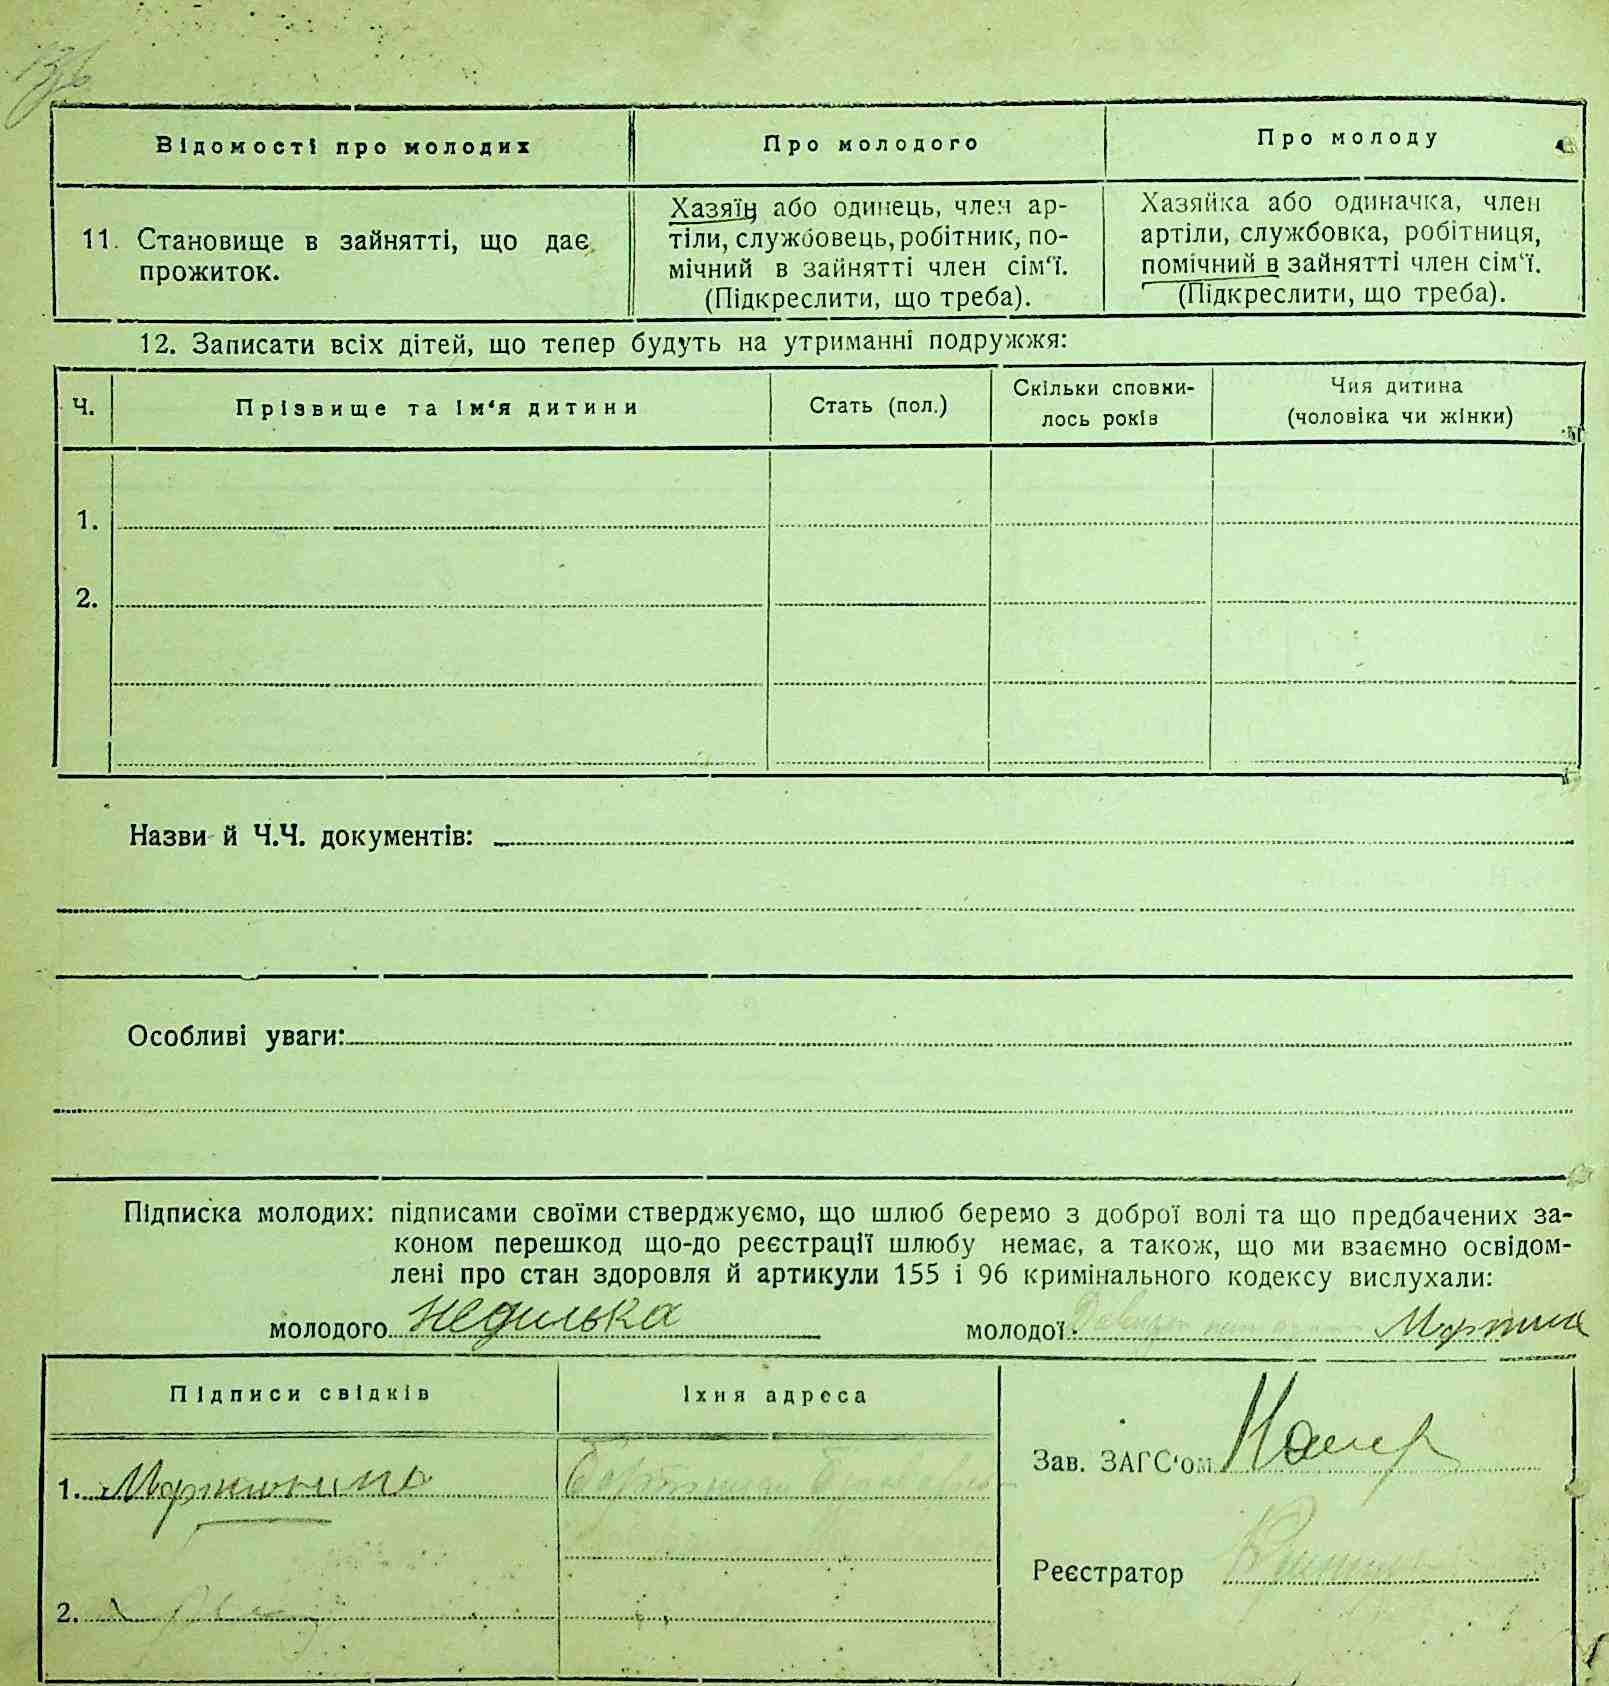 136
Відомості про молодих
Про молодого
Про молоду
11. Становище в зайнятті, що дає прожиток.
Хазяїн або одинець, член ар-
тіли, службовець, робітник, по-
мічний в зайнятті член сім'ї.
(Підкреслити, що треба).
Хазяйка або одиначка, член
артіли, службовка, робітниця,
помічний в зайнятті член сім'ї.
(Підкреслити, що треба).
12. Записати всіх дітей, що тепер будуть на утриманні подружжя:
Ч.
Прізвище та ім'я дитини
Стать (пол.)
Скільки сповни-
лось років
Чия дитина
(чоловіка чи жінки)
1.
2.
Назви й Ч.Ч. документів:
Особливі уваги:
Підписка молодих: підписами своїми стверджуємо, що шлюб беремо з доброї волі та що предбачених за-
коном перешкод що-до реєстрації шлюбу немає, а також, що ми взаємно освідом-
лені про стан здоровля й артикули 155 і 96 кримінального кодексу вислухали:
молодого Недилька молодої
Підписи свідків
Їхня адреса
1.
2.
Зав. ЗАГС'ом
Реєстратор